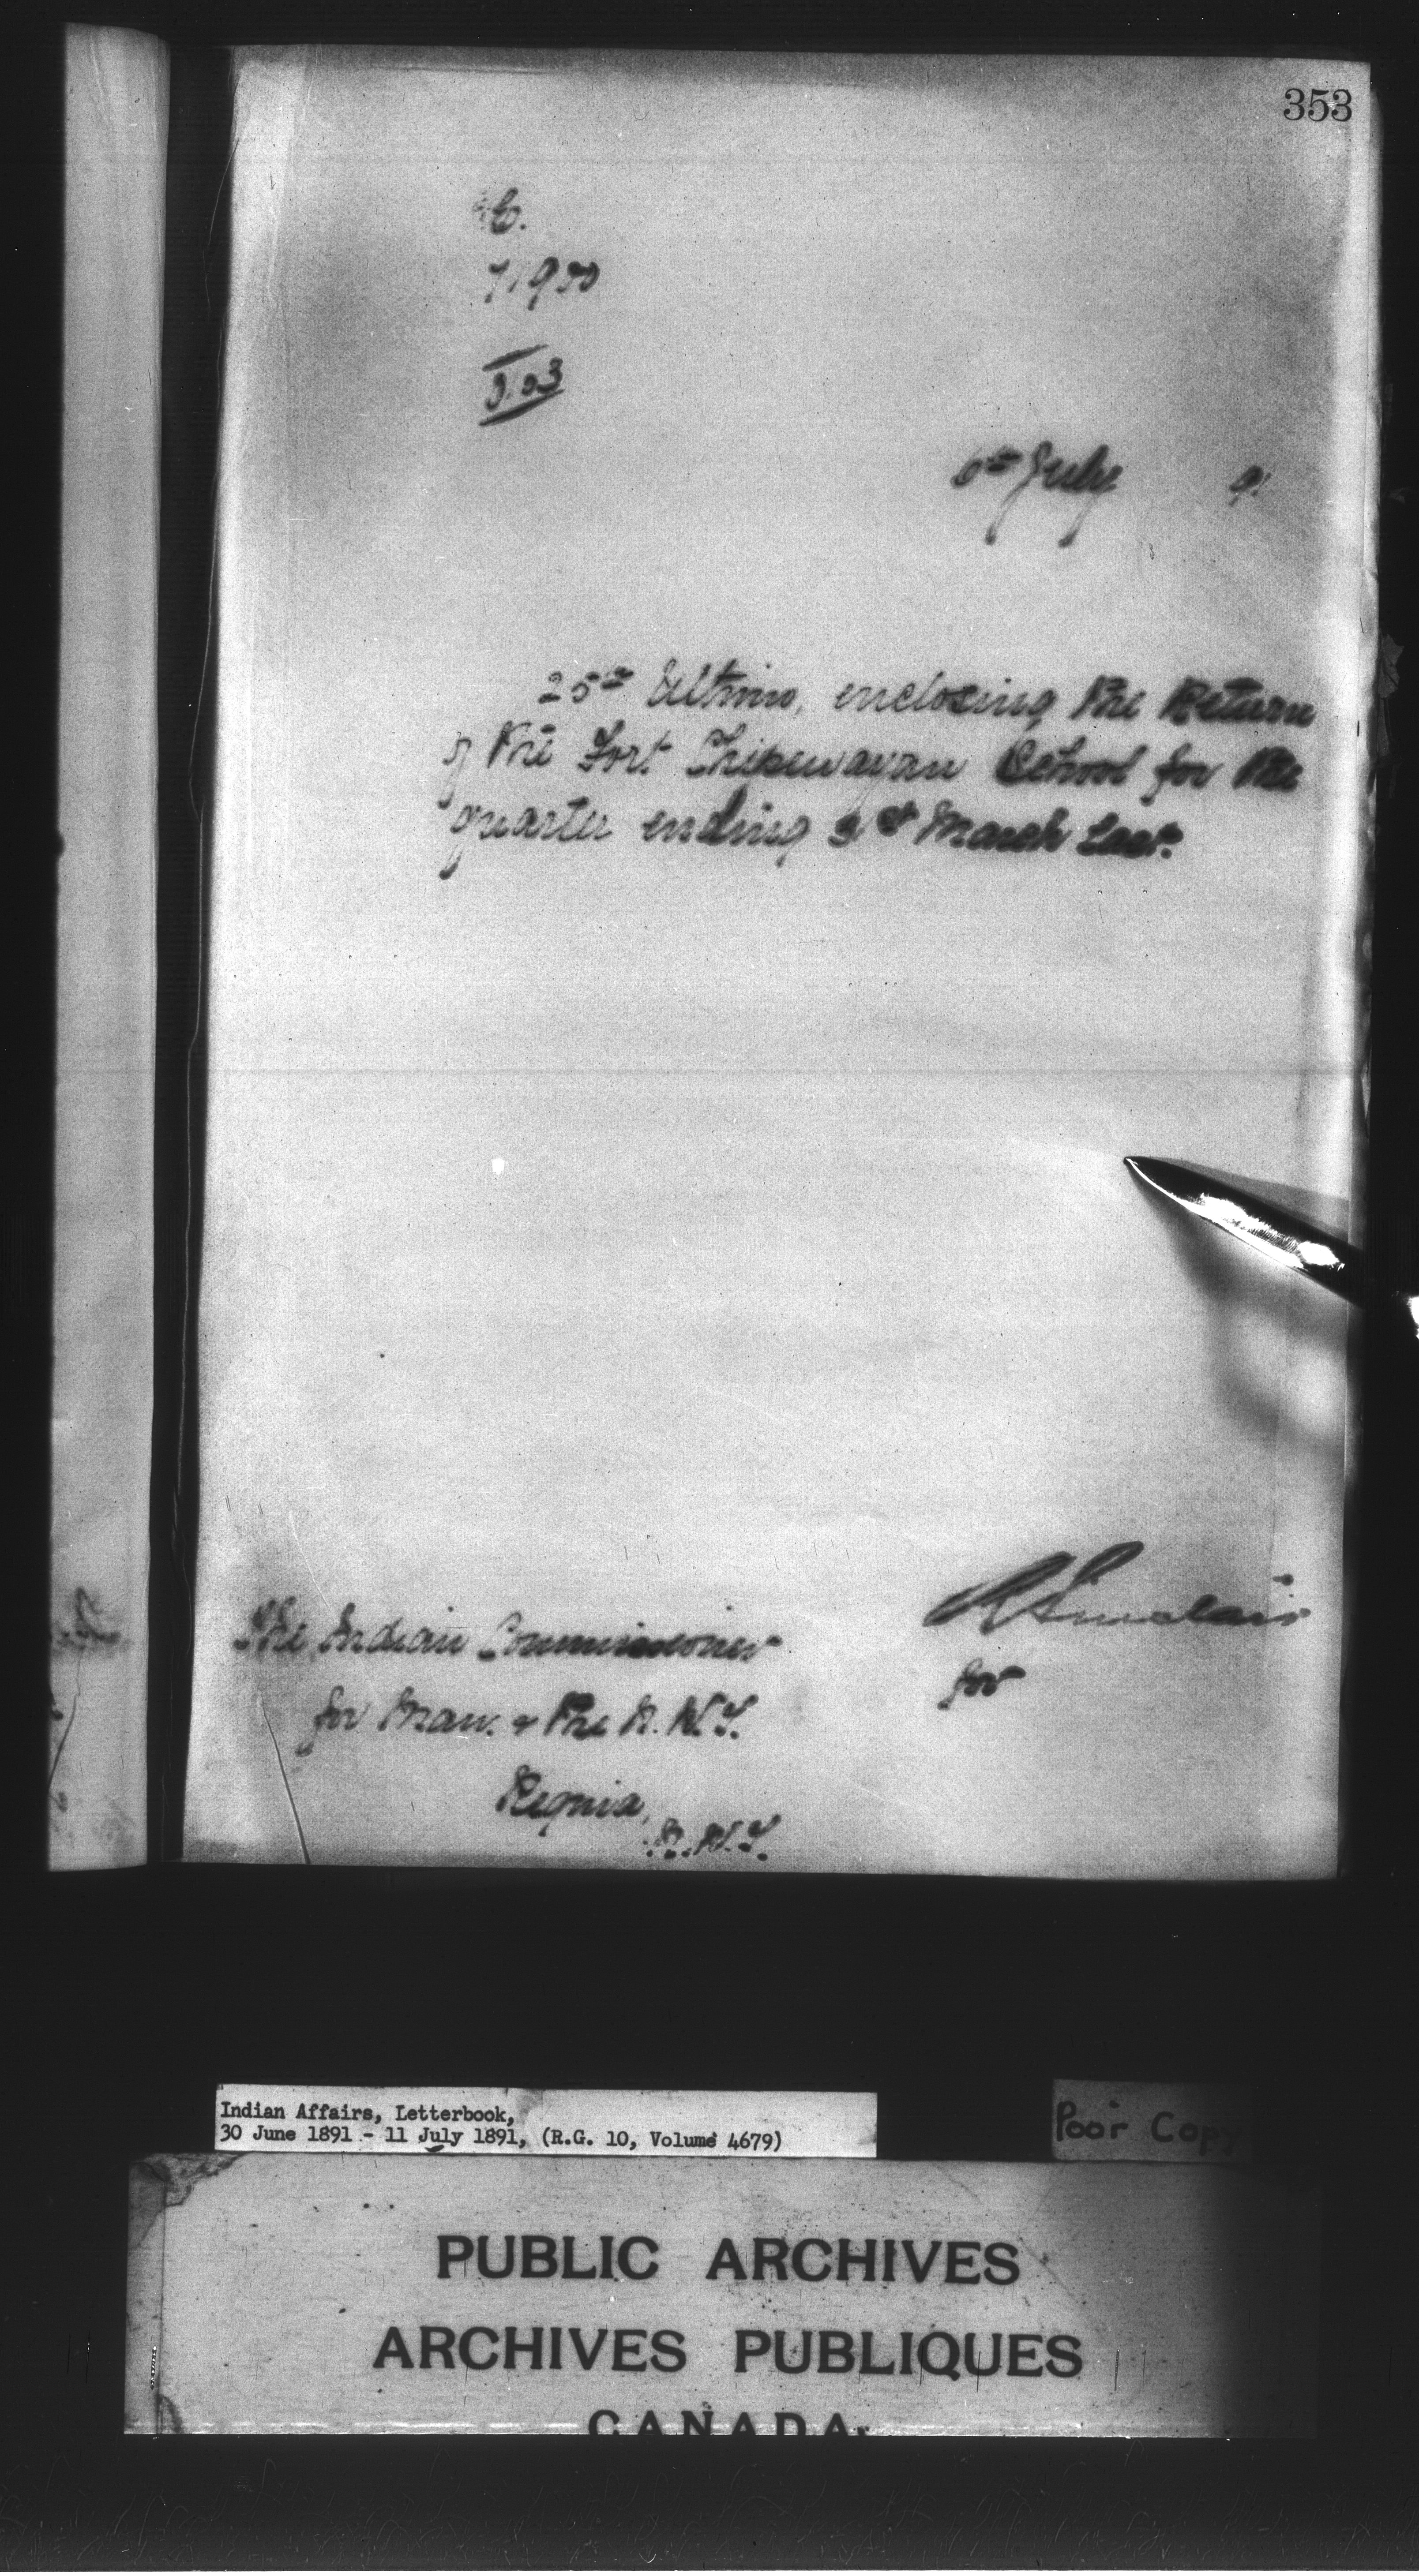 353
6th July 91
25th Ultimo, enclosing the Return
of the Fort Chipewayan School for the
quarter ending 31st March Last.
The Indian Commissioner
for Man. & the N.W.T.
Regina,
N.W.T.
Sinclair
for
Indian Affairs, Letterbook,
30 June 1891 - 11 July 1891, (R.G. 10, Volume 4679)
Poor Copy
PUBLIC ARCHIVES
ARCHIVES PUBLIQUES
CANADA